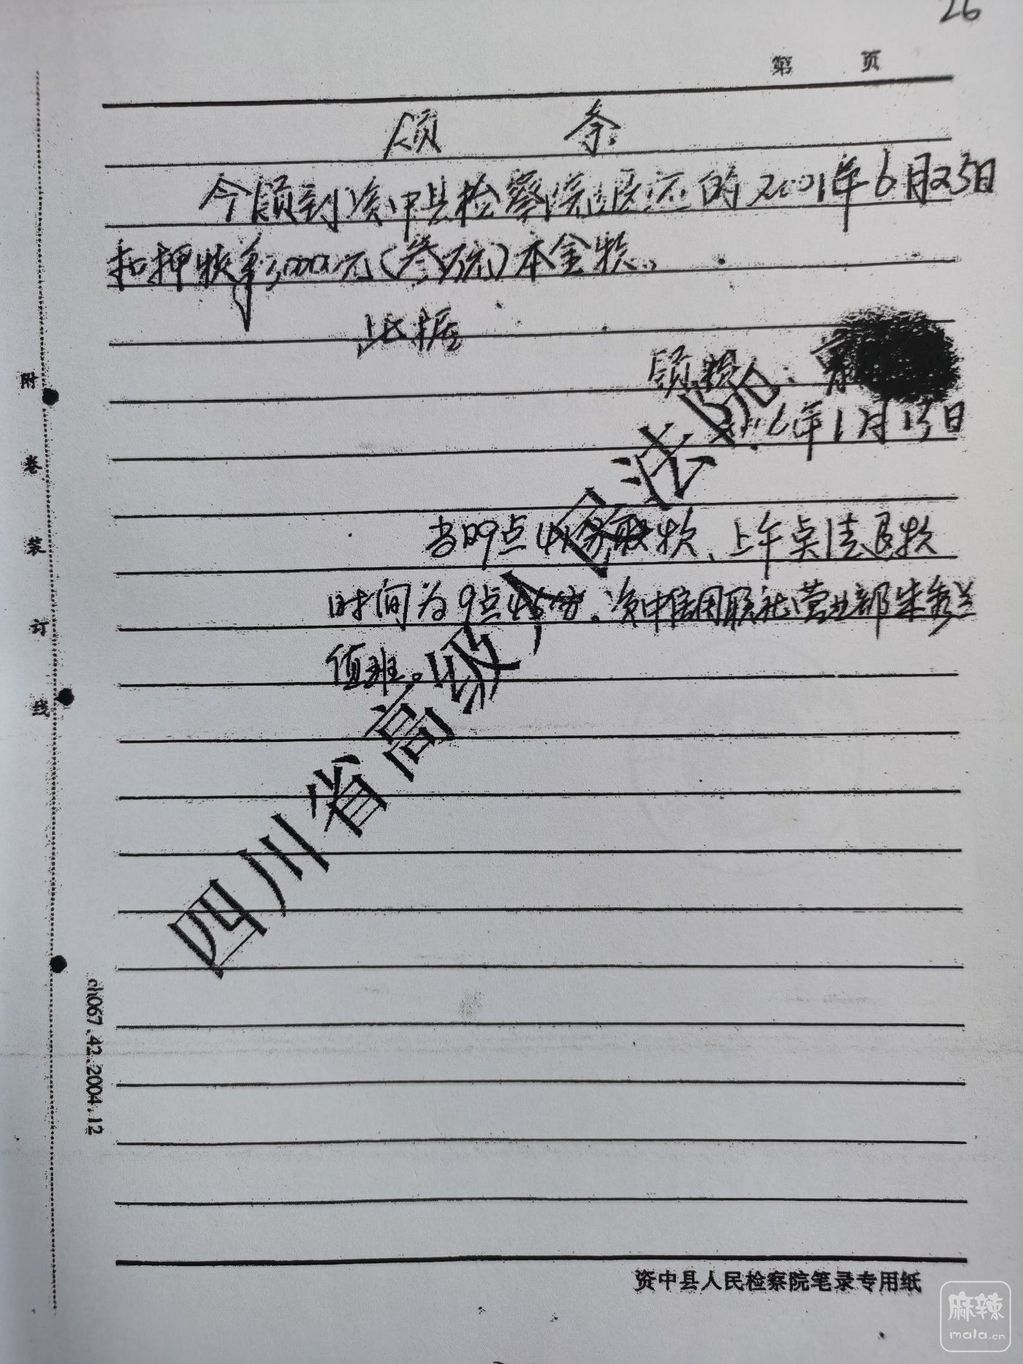 26
第 页
领 条
今领到资中县检察院退还的2001年6月25日
扣押牧羊30000元(叁万元)本金款。
此据
领款
6年1月13日
当时9点4 取款、上午卓清退款
时间为9点45分。资中信用联社营业部朱秀兰
值班。
四川省高级人民法院
附卷装订线
ch067.42.2004.12
资中县人民检察院笔录专用纸
麻辣
mala.cn